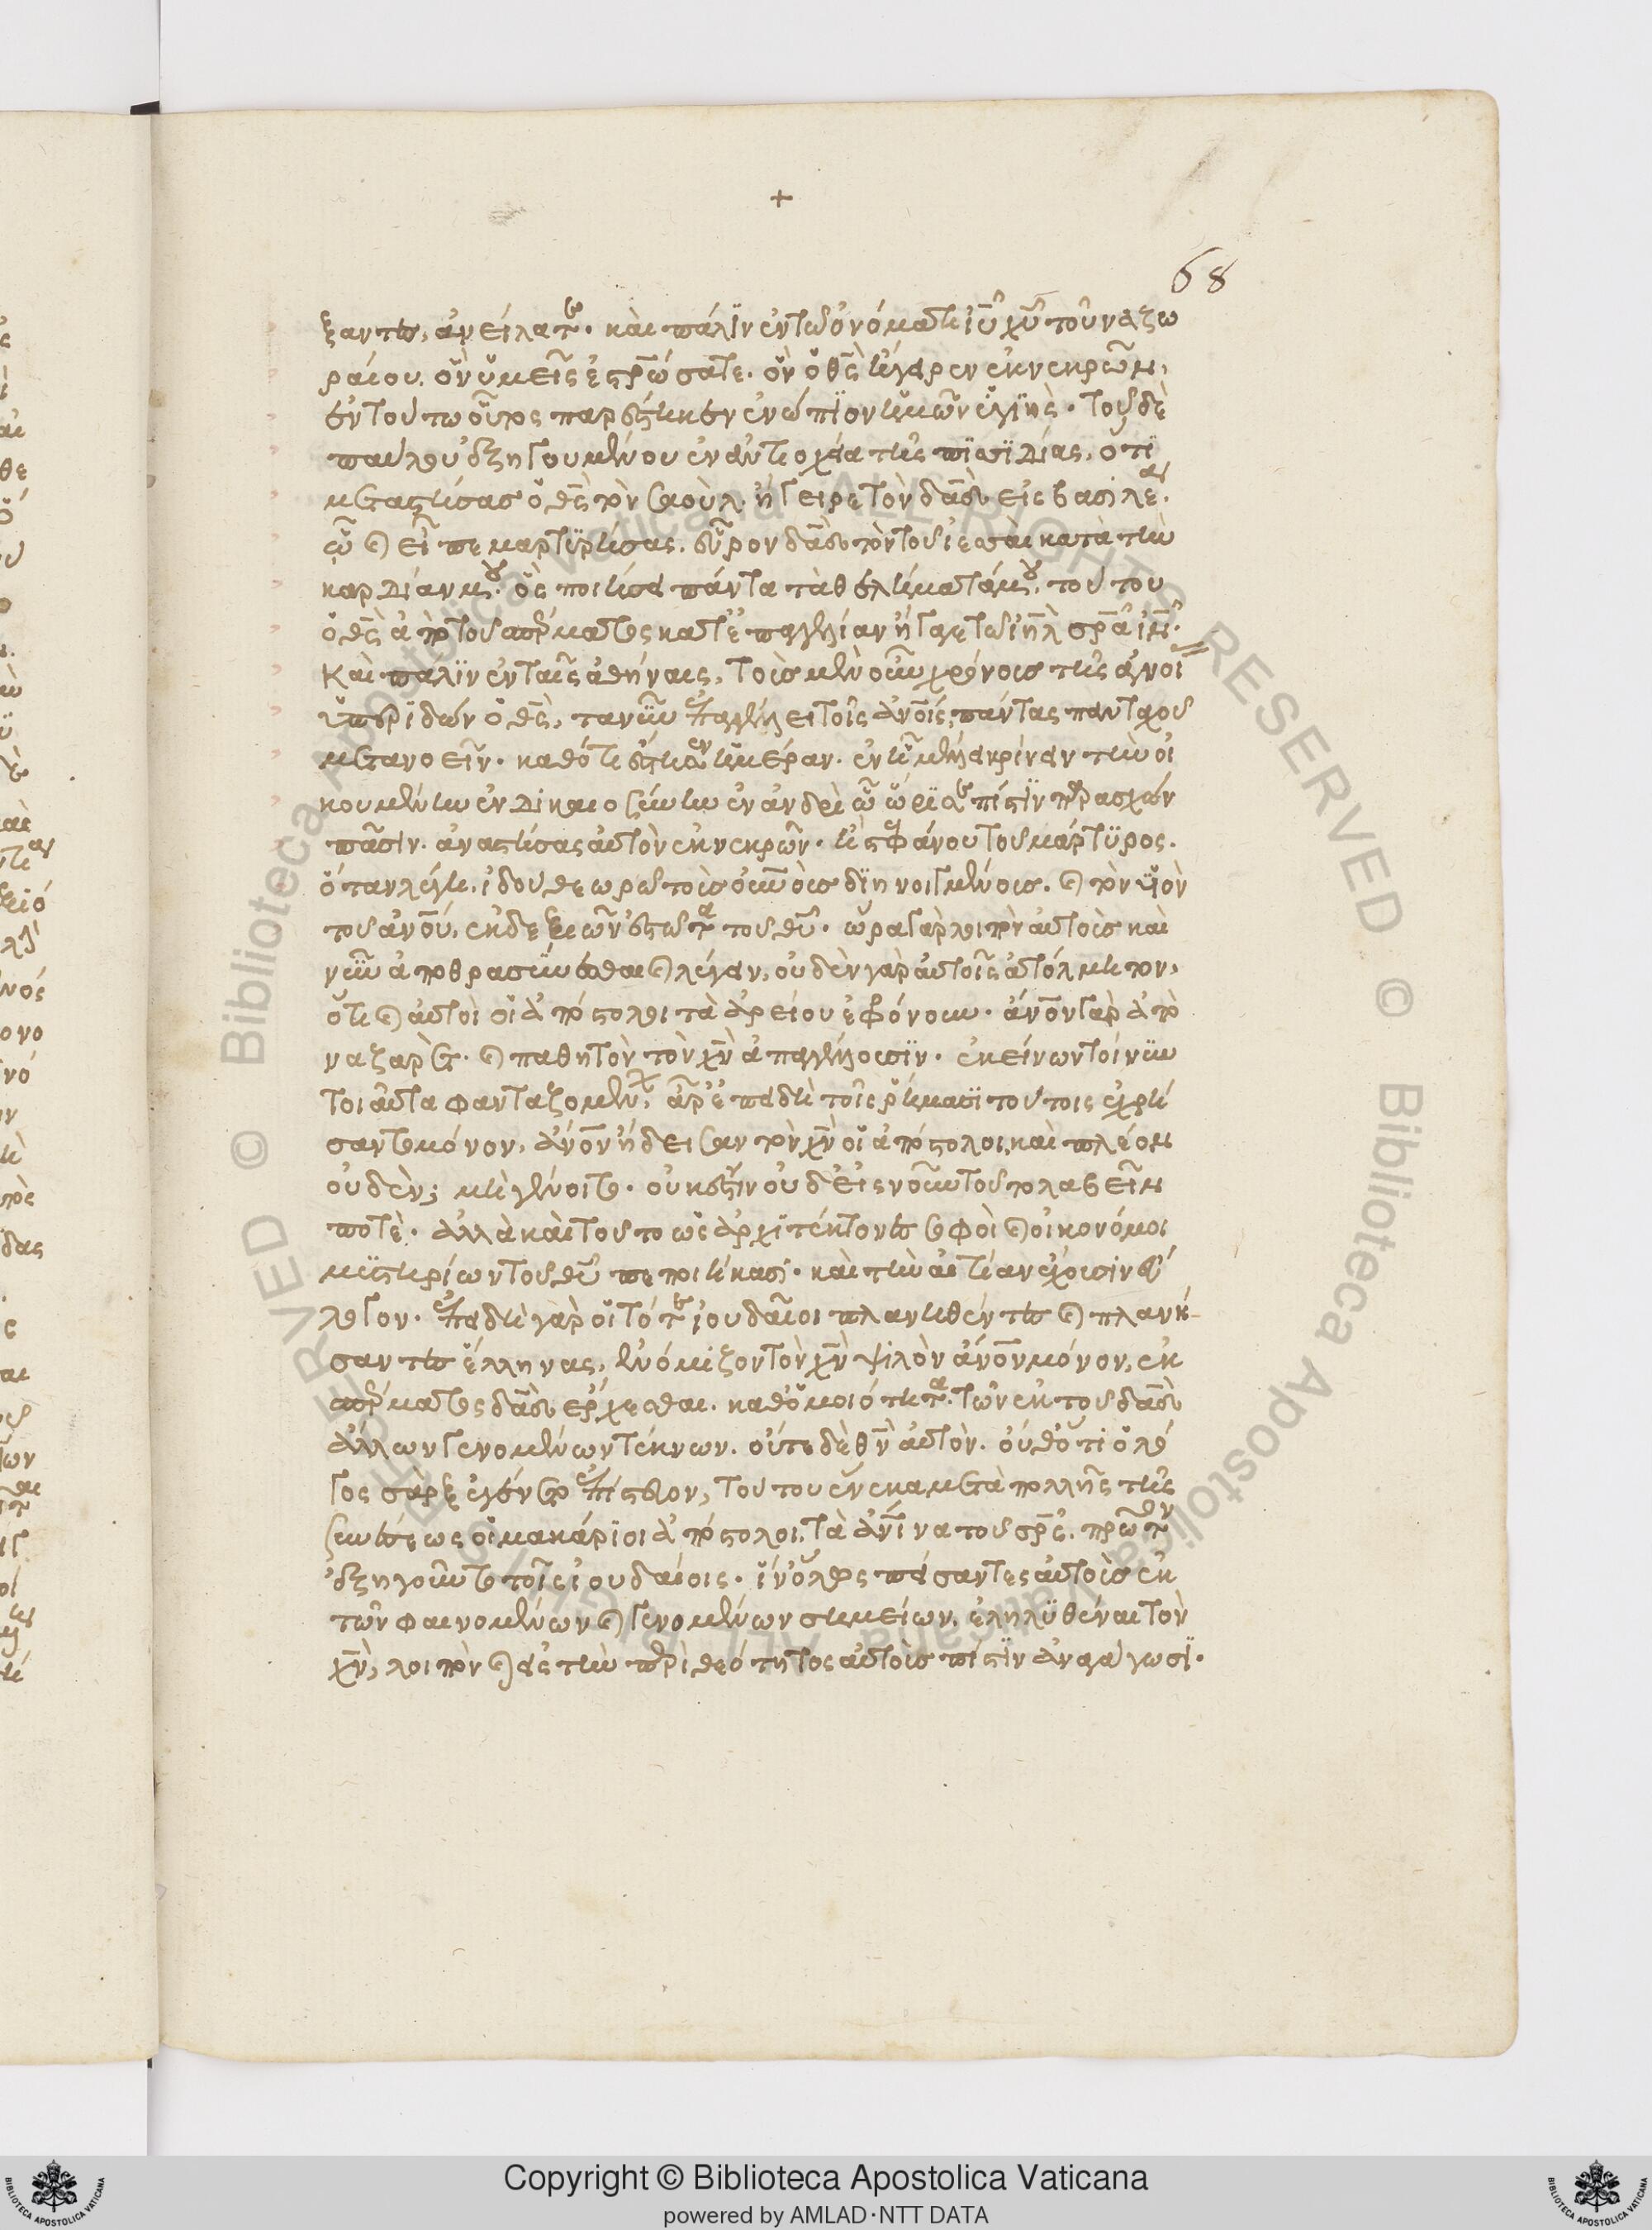 +
68
ξαντες, ἀνείλατε. καὶ πάλϊν ἐν τῶ ὀνόματι ἰῦ χῦ τοῦ ναζω
ραίου. ὃν ὑμεῖς ἐσρ̅ώσατε. ὃν ὁ θς̅ ἤγειρεν ἐκ νεκρῶν,
ἐν τούτω οὗτος παρέστηκεν ἐνώπϊον ὑμῶν ὑγϊής. τοῦ δὲ
παύλου ἐξηγουμένου ἐν ἀντιοχεία τῆς πϊσϊδίας, ὅτϊ
μεταστήσας ὁ θς̅ τὸν σαοὺλ ἤγειρε τὸν δαδ̅ εἰς βασιλέα.
ὧ καὶ εἶπε μαρτϋρήσας. εὗρον δαδ̅ τὸν τοῦ ἰεσσαὶ κατὰ τὴν
καρδίαν μου. ὃς ποιήσει πάντα τὰ θελήματά μου. τούτου
ὁ θς̅ ἀπὸ τοῦ σπέρματος κατ' ἐπαγγελίαν ἤγαγε τῶ ἰηλ̅ σρ̅α ἰν̅.
Καὶ παλϊν ἐν ταῖς ἀθήναις, τοὺς μὲν οὖν χρόνους τῆς ἀγνοί
ὑπερϊδὼν ὁ θς̅, τανῦν ἐπαγγέλλει τοῖς ἀνοις̅, πάντας πανταχοῦ
μετανοεῖν. καθότι ἔστησεν ἡμέραν. ἐν ἧ μέλλει κρίνειν τὴν οἰ
κουμένην ἐν δικαιοσύνη ἐν ἀνδρὶ ὧ ὥρϊσε πίστϊν παρασχὼν
πᾶσιν. ἀναστήσας αὐτὸν ἐκ νεκρῶν. ἢ στεφάνου τοῦ μάρτϋρος.
ὅταν λέγη. ἰδοὺ θεωρῶ τοὺς οὐνοὺς διηνοιγμένους. καὶ τὸν ὑϊὸν
τοῦ ἀνου̅, ἐκ δεξιῶν ἑστῶτα τοῦ θῦ. ὥρα γὰρ λοιπὸν αὐτοὺς καὶ
νῦν ἀποθρασύνεσθαι καὶ λέγειν, οὐδὲν γὰρ αὐτοῖς ἀτόλμητον,
ὅτι καὶ αὐτοὶ οἱ ἀπόστολοι τὰ ἀρείου ἐφρόνουν. ἀνον̅ γὰρ ἀπὸ
ναζαρὲτ. καὶ παθητὸν τὸν χν̅ ἀπαγγέλουσϊν. ἐκείνων τοίνυν
τοιαῦτα φανταζομένων, ἆρ' ἐπειδὴ τοῖς ῥήμασϊ τούτοις ἐχρή
σαντο μόνον, ἀνον̅ ἤδεισαν τὸν χν̅ οἱ ἀπόστολοι, καὶ πλέον
οὐδέν; μὴ γένοιτο. οὐκ ἔστιν οὐδ' εἰς νοῦν τοῦτο λαβεῖν
ποτὲ. ἀλλὰ καὶ τοῦτο ὡς ἀρχϊτέκτονες σοφοὶ καὶ οἰκονόμοι
μϋστηρίων τοῦ θῦ πεποιήκασι. καὶ τὴν αἰτίαν ἔχουσιν εὔ
λογον. ἐπειδὴ γὰρ οἱ τότε ἰουδαῖοι πλανηθέντες καὶ πλανή-
σαντες ἕλληνας, ἐνόμιζον τὸν χν̅ ψιλὸν ἀνον̅ μόνον, ἐκ
σπέρματος δαδ̅ ἔρχεσθαι. καθ' ὁμοιότητα τῶν ἐκ τοῦ δαδ̅
ἄλλων γενομένων τέκνων. οὔτε δὲ θν̅ αὐτὸν. οὐδ' ὅτι ὁ λό
γος σὰρξ ἐγένετο ἐπίστευον, τούτου ἕνεκα μετὰ πολλῆς τῆς
συνέσεως οἱ μακάρϊοι ἀπόστολοι, τὰ ἀνϊνα τοῦ σρ̅ς. πρῶτον
ἐξηγοῦντο τοῖς ἰουδαίοις. ἵν' ὅλως πείσαντες αὐτοὺς ἐκ
τῶν φαινομένων καὶ γενομένων σημείων, ἐληλϋθέναι τὸν
χν̅, λοιπὸν καὶ εἰς τὴν περὶ θεότητος αὐτοῦς πίστϊν ἀναγάγωσϊ.